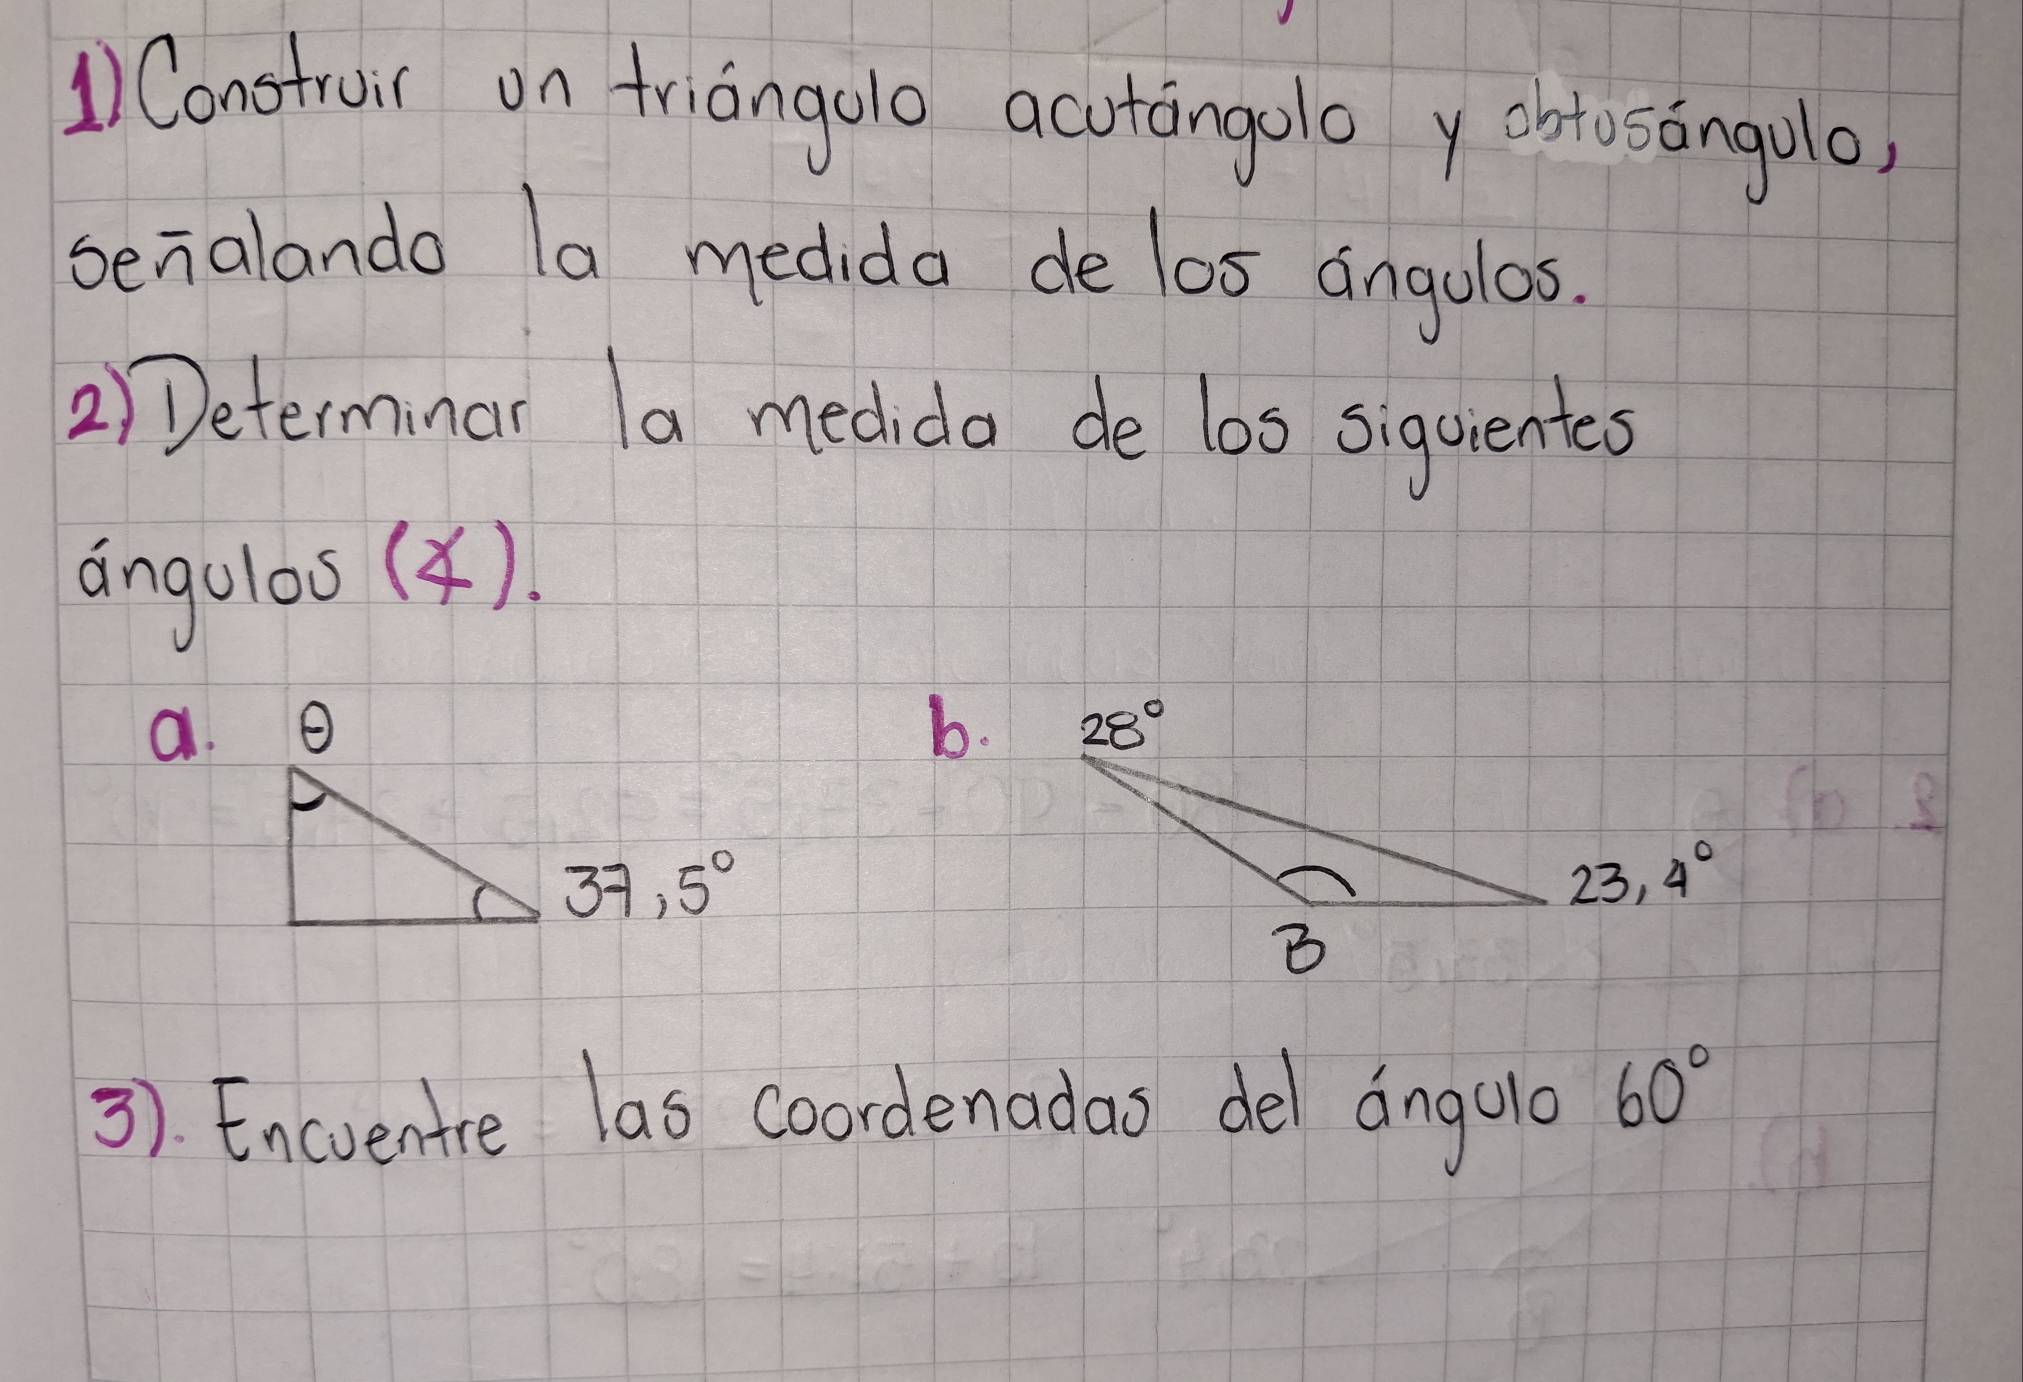 1) Construir un triángulo acutángulo y obtusángulo,
señalando la medida de los ángulos.
2) Determinar la medida de los siguientes
ángulos (∡).
a. θ
b. 28°
37,5°
23,4°
B
3). Encuentre las coordenadas del ángulo 60°